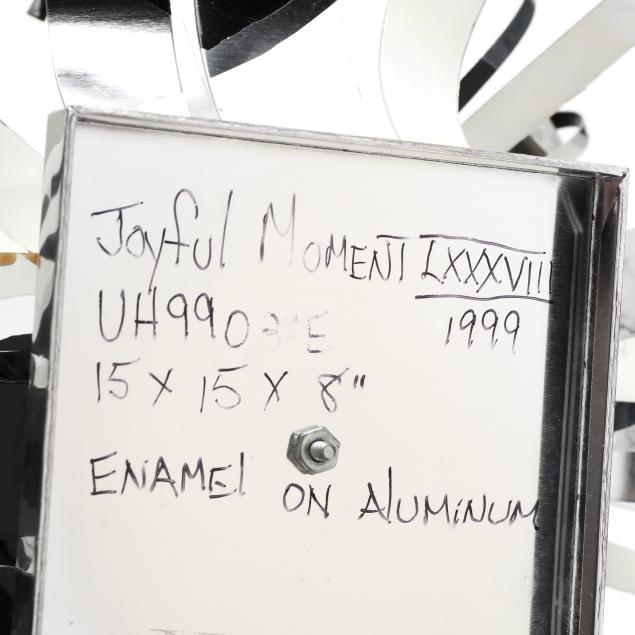 Joyful Moment LXXXVIII
1999
15 x 15 x 8"
Enamel on Aluminum